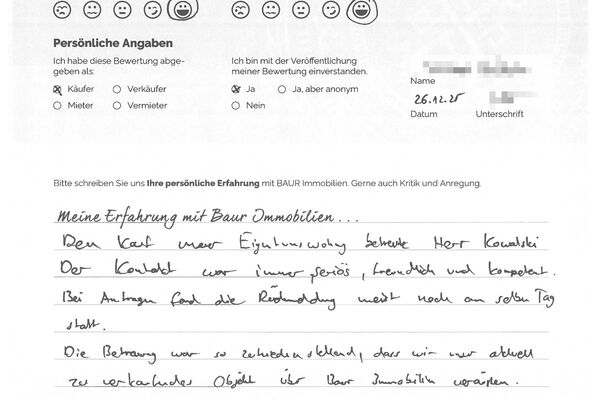 Persönliche Angaben
Ich habe diese Bewertung abge-
geben als:
Käufer
Verkäufer
Mieter
Vermieter
Ich bin mit der Veröffentlichung
meiner Bewertung einverstanden.
Ja
Ja, aber anonym
Nein
Name
26.12.25
Datum
Unterschrift
Bitte schreiben Sie uns Ihre persönliche Erfahrung mit BAUR Immobilien. Gerne auch Kritik und Anregung.
Meine Erfahrung mit Baur Immobilien...
Den Kauf meiner Eigentumswohnung betreute Herr Kowalski
Der Kontakt war immer seriös, freundlich und kompetent.
Bei Anfragen fand die Rückmeldung meist noch am selben Tag
statt.
Die Betreuung war so zufriedenstellend, dass wir unser aktuell
zu verkaufendes Objekt über Baur Immobilien